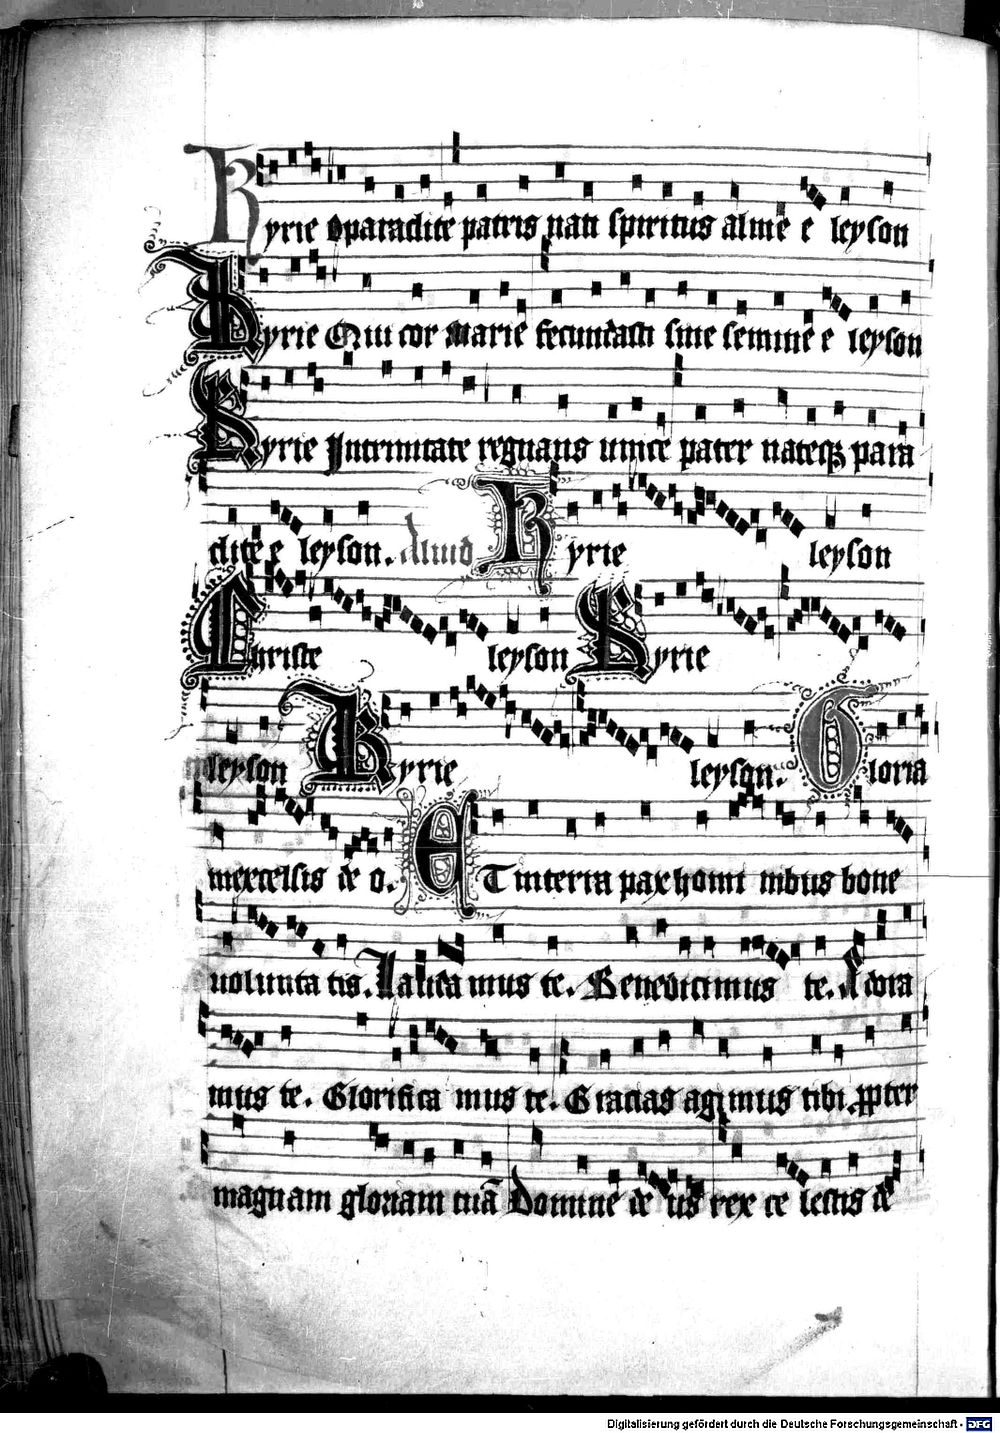 Kyrie O paraclite patris nati spiritus alme e leyson
Kyrie Qui cor Marie fecundasti sine semine e leyson
Kyrie In trinitate regnans unice pater nateqȝ para
clite e leyson. Aliud Kyrie leyson
Christe leyson Kyrie
leyson Kyrie leyson. Gloria
in excelsis de o. ET in terra pax homi nibus bone
volunta tis. Lauda mus te. Benedicimus te. Adora
mus te. Glorifica mus te. Gracias agimus tibi ꝓpter
magnam gloriam tuā Domine de us rex ce lestis de
Digitalisierung gefördert durch die Deutsche Forschungsgemeinschaft - DFG